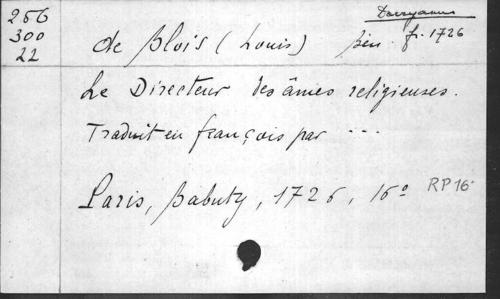 266
300
22
de Blois (Louis) fr. 1726
Le Directeur des âmes religieuses.
Traduit en français par ...
Paris, Babuty, 1726, 16º RP 16